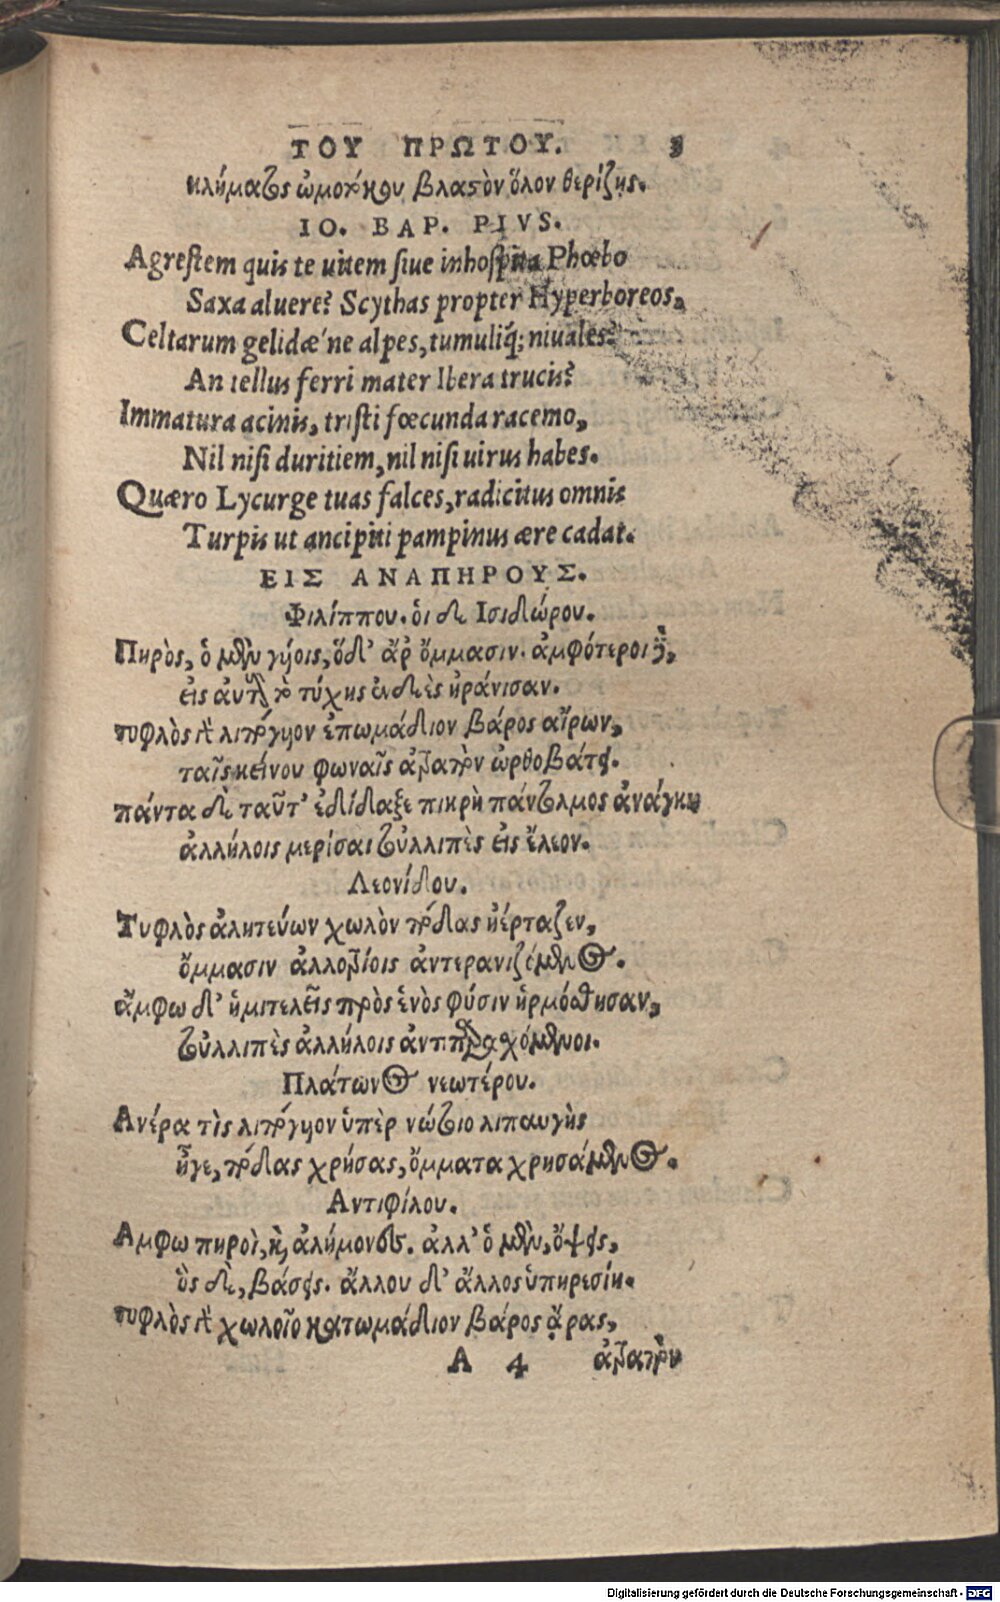 ΤΟΥ ΠΡΩΤΟΥ. 3
κλήματος ὠμοτόκου βλαστὸν ὅλον θερίζῃς.
IO. BAP. PIVS.
Agrestem quis te uitem siue inhospita Phœbo
Saxa aluere? Scythas propter Hyperboreos,
Celtarum gelidæ´ne alpes, tumuliq́; niuales?
An tellus ferri mater Ibera trucis?
Immatura acinis, tristi fœcunda racemo,
Nil nisi duritiem, nil nisi uirus habes.
Quæro Lycurge tuas falces, radicitus omnis
Turpis ut ancipiti pampinus ære cadat.
ΕΙΣ ΑΝΑΠΗΡΟΥΣ.
Φιλίππου. ὁι δὲ Ισιδώρου.
Πηρὸς, ὁ μὲν γυίοις, ὁ δ' ἄρ ὄμμασιν. ἀμφότεροι δὲ,
εἰς αὐτὸν τὸ τύχης ἐνδεὲς ἠράνισαν.
τυφλὸς γὰρ λιπόγυιον ἐπωμάδιον βάρος αἴρων,
ταῖς κείνου φωναῖς ἀτραπὸν ὠρθοβάτει.
πάντα δὲ ταῦτ' ἐδίδαξε πικρὴ πάντολμος ἀνάγκη
ἀλλήλοις μερίσαι τοὐλλιπὲς εἰς ἔλεον.
Λεονίδου.
Τυφλὸς ἀλητεύων χωλὸν πόδας ἠέρταζεν,
ὄμμασιν ἀλλοτρίοις ἀντερανιζόμενος.
ἄμφω δ' ἡμιτελεῖς πρὸς ἑνὸς φύσιν ἡρμόσθησαν,
τοὐλλιπὲς ἀλλήλοις ἀντιπαρασχόμενοι.
Πλάτωνος νεωτέρου.
Ανέρα τὶς λιπόγυιον ὑπὲρ νώτοιο λιπαυγὴς
ἦγε, πόδας χρήσας, ὄμματα χρησάμενος.
Αντιφίλου.
Αμφω πηροὶ, καὶ ἀλήμονες. ἀλλ' ὁ μὲν, ὄψεις,
ὃς δὲ, βάσεις. ἄλλου δ' ἄλλος ὑπηρεσίη.
τυφλὸς γὰρ χωλοῖο κατωμάδιον βάρος ἄρας,
A 4 ἀτραπὸν
Digitalisierung gefördert durch die Deutsche Forschungsgemeinschaft - DFG